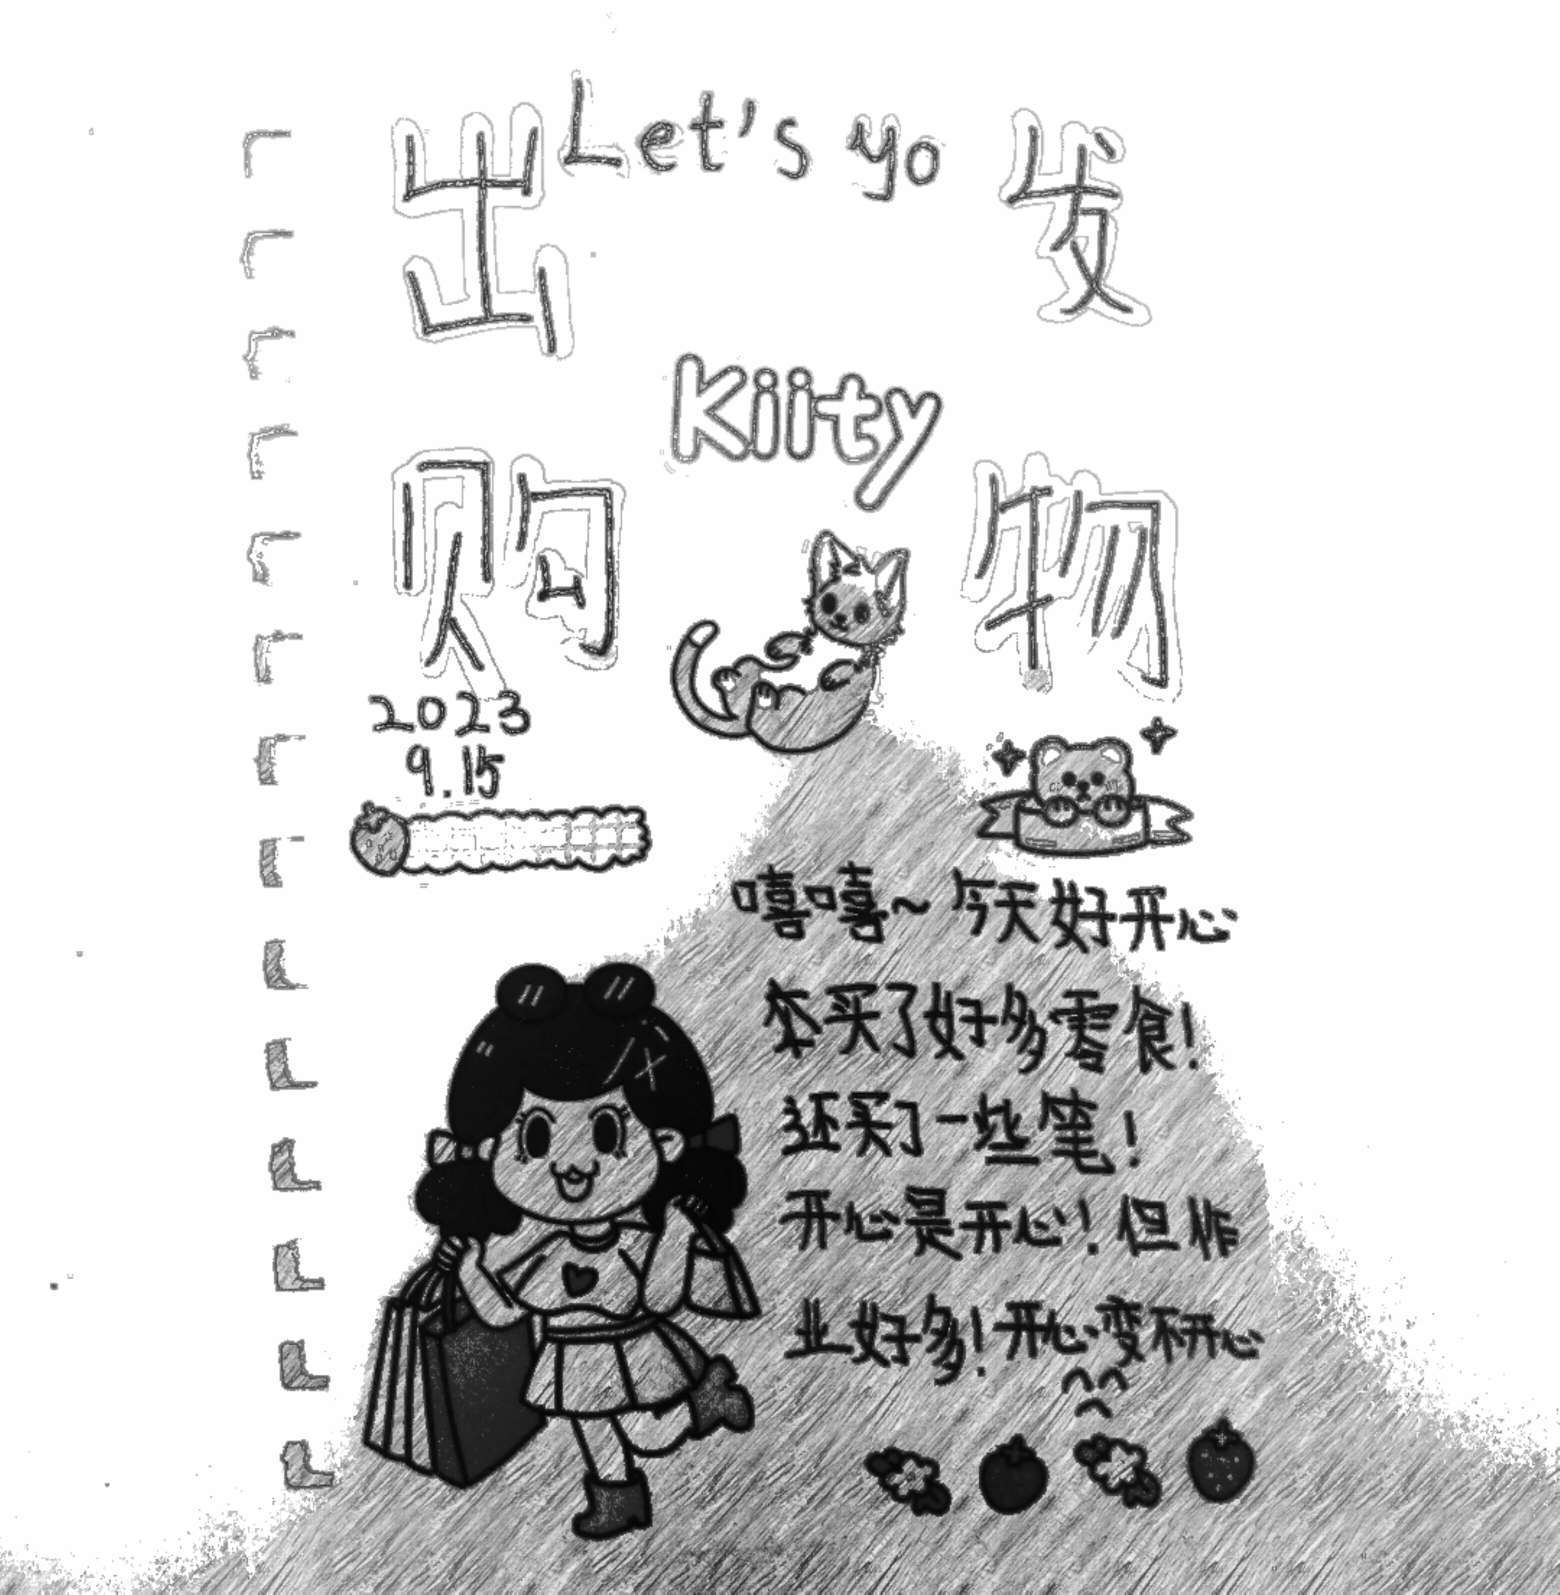 Let's yo
出发
Kiity
购物
2023
9.15
嘻嘻~今天好开心
买了好多零食!
还买了一些笔!
开心是开心!但作
业好多!开心变不开心